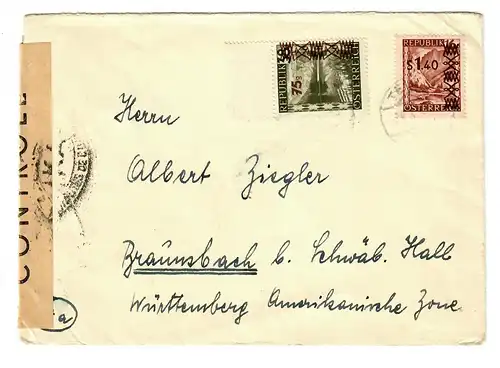 REPUBLIK
ÖSTERREICH
75g
REPUBLIK
S 1.40
ÖSTERREICH
CONTROLE
Herrn
Albert Ziegler
Braunsbach b. Schwäb. Hall
Württemberg Amerikanische Zone